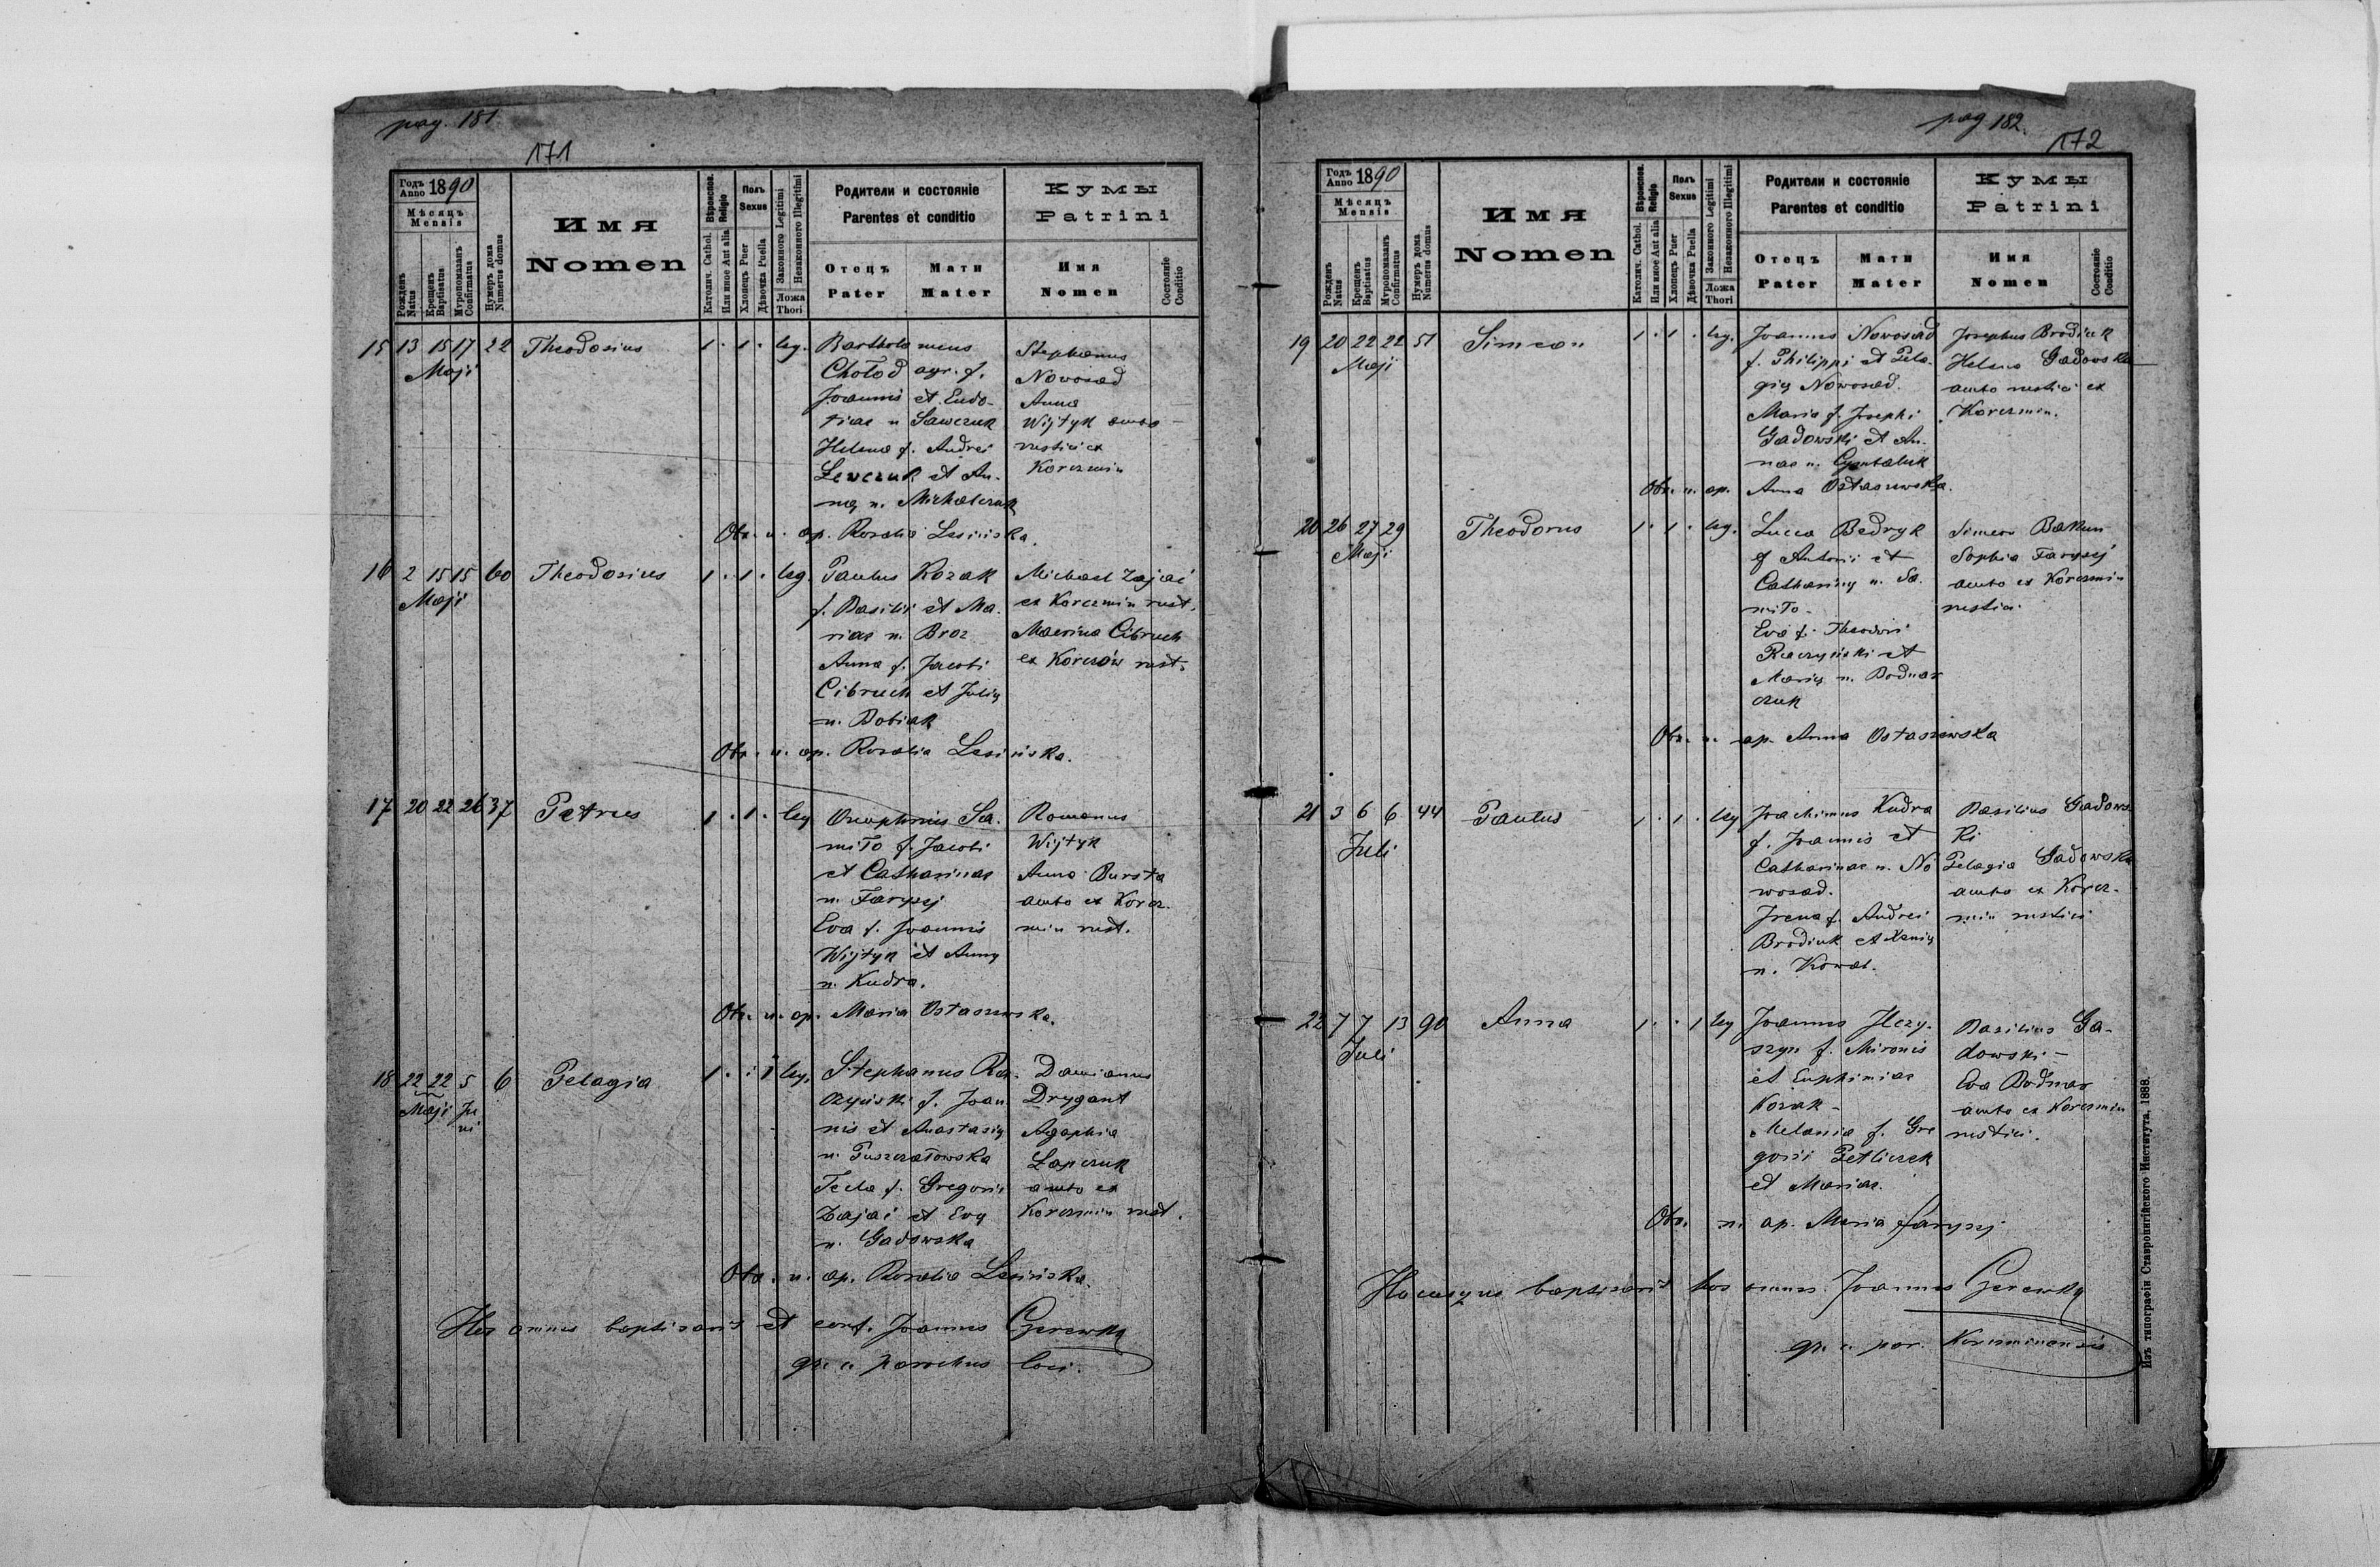 pag. 181
171
Годъ Anno 1890
Мѣсяцъ Mensis
Рожденъ Natus
Крещенъ Baptisatus
Мѵропомазанъ Confirmatus
Нумеръ дома Numerus domus
Имя
Nomen
Вѣроиспов. Religio
Католич. Cathol.
Или иное Aut alia
Полъ Sexus
Хлопецъ Puer
Дѣвочка Puella
Законного Legitimi
Незаконного Illegitimi
Ложа Thori
Родители и состояніе
Parentes et conditio
Отецъ Pater
Мати Mater
Кумы
Patrini
Имя Nomen
Состояніе Conditio
15 13 15 17 22 Theodosius 1 . 1 . leg.
Maji
Bartholomeus
Chołod agr. f.
Joannis et Eudo-
tiae n Sawczuk
Helena f. Andrei
Lewczuk et An-
nae n. Michalczuk
Stephanus
Nowosad
Anna
Wijtyk ambo
rustici ex
Korczmin
Obs. n. ap. Rosalia Lesińska.
16 2 15 15 60 Theodosius 1 . 1 . leg.
Maji
Paulus Kozak
f. Basilii et Ma-
riae n. Broz
Anna f. Jacobi
Cibruch et Julię
n. Bobiak
Michael Zajac
ex Korczmin rust.
Macrina Cibruch
ex Korczów rust.
Obs. n. ap. Rosalia Lesińska.
17 20 22 26 37 Petrus 1 . 1 . leg
Onuphrius Sa-
miło f. Jacobi
et Catharinae
n. Farysij
Eva f. Joannis
Wijtyk et Annę
n. Kudra.
Romanus
Wijtyk
Anna Bursta
ambo ex Korcz-
min rust.
Obs. n. ap. Maria Ostaszewska.
18 22 22 5 6 Pelagia 1 . . 1 leg.
Maji Ju
ni
Stephanus Ra-
czyński f. Joan
nis et Anastasię
n. Puszczałowska
Tecla f. Gregorii
Zajac et Evę
n. Gadowska
Damianus
Drygant
Agaphia
Łapczuk
ambo ex
Korczmin rust.
Obs. n. ap. Rosalia Lesińska.
Hos omnes baptisavit et conf. Joannes Czerewką
gr. c. parochus loci.
pag 182.
172
Годъ Anno 1890
Мѣсяцъ Mensis
Рожденъ Natus
Крещенъ Baptisatus
Мѵропомазанъ Confirmatus
Нумеръ дома Numerus domus
Имя
Nomen
Вѣроиспов. Religio
Католич. Cathol.
Или иное Aut alia
Полъ Sexus
Хлопецъ Puer
Дѣвочка Puella
Законного Legitimi
Незаконного Illegitimi
Ложа Thori
Родители и состояніе
Parentes et conditio
Отецъ Pater
Мати Mater
Кумы
Patrini
Имя Nomen
Состояніе Conditio
19 20 22 22 51 Simeon 1 . 1 . leg.
Maji
Joannes Nowosad
f. Philippi et Pela-
gię Nowosad.
Maria f. Josephi
Gadowski et An-
nae n. Cymbaluk
Josephus Brodiuk
Helena Gadowska
ambo rustici ex
Korczmin.
Obs. n. ap. Anna Ostaszewska.
20 26 27 29 Theodorus 1 . 1 . leg.
Maji
Lucca Bedryk
f Antonii et
Catharinę n. Sa-
miło-
Eva f. Theodori
Raczyński et
Marię n. Bodnar
czuk
Simeon Bakun
Sophia Farysij
ambo ex Korczmin
rustici.
Obs. n. ap. Anna Ostaszewska
21 3 6 6 44 Paulus 1 . 1 . leg
Juli
Joachimus Kudra
f. Joannis et
Catharinae n. No
wosad.
Irena f. Andrei
Brodiuk et Xenię
n. Kowal.
Basilius Gadows-
ki
Pelagia Gadowska
ambo ex Korcz-
min rustici
22 7 7 13 90 Anna 1 . . 1 leg
Juli
Joannes Jlczy-
szyn f. Mironis
et Euphimiae
Kozak -
Melania f. Gre
gorii Petliczek
et Mariae
Basilius Ga-
dowski -
Eva Bodnar
ambo ex Korczmin
rustici.
Obs. n. ap. Maria Farysij
Hocusque baptisavit hos omnes Joannes Czerewką
gr. c. par. Korczminensis
Изъ типографіи Ставропигійского Института, 1888.